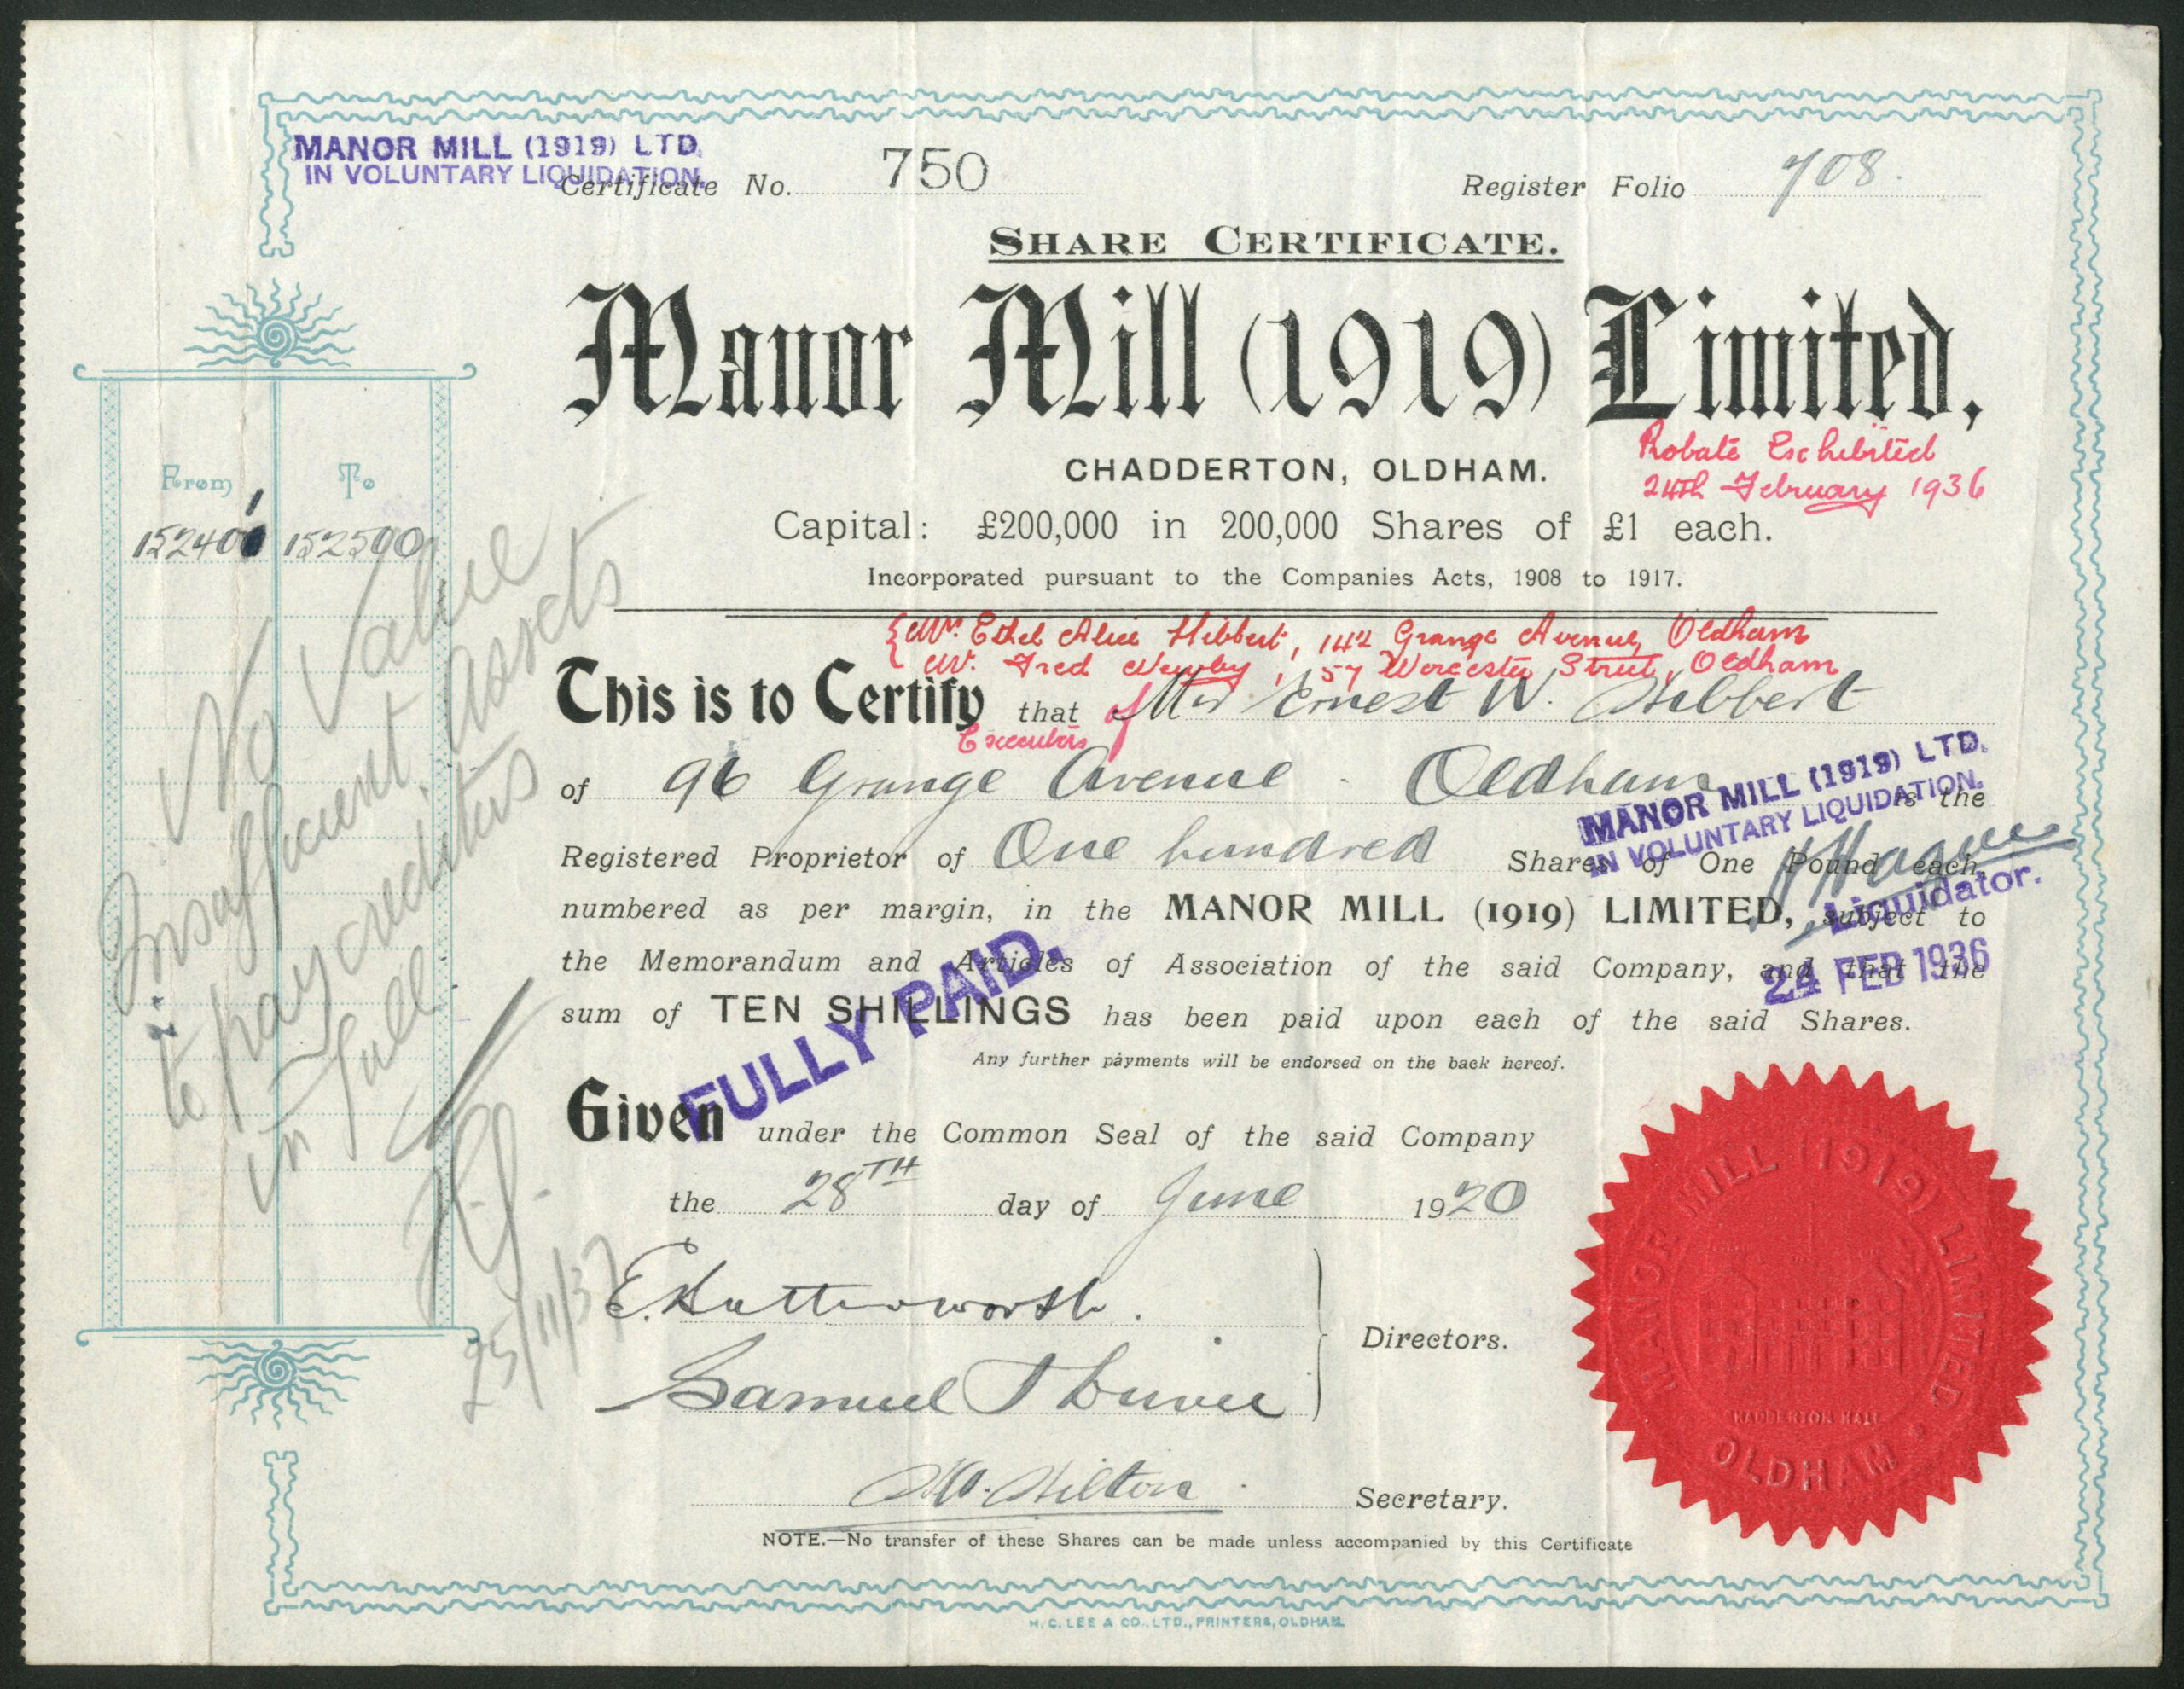 MANOR MILL (1919) LTD.
IN VOLUNTARY LIQUIDATION.
Certificate No. 750
Register Folio 708.
SHARE CERTIFICATE.
Manor Mill (1919) Limited,
CHADDERTON, OLDHAM.
Probate Exhibited
24th February 1936
Capital: £200,000 in 200,000 Shares of £1 each.
Incorporated pursuant to the Companies Acts, 1908 to 1917.
From To
152401 152500
No Value
Insufficient Assets
to pay creditors
in full
25/11/37
Ethel Alice Hibbert, 142 Grange Avenue, Oldham
Mr. Fred Newby, 57 Worcester Street, Oldham
Executors of
This is to Certify that Mr Ernest W. Hibbert
of 96 Grange Avenue - Oldham is the
Registered Proprietor of One hundred Shares of One Pound each,
numbered as per margin, in the MANOR MILL (1919) LIMITED, subject to
the Memorandum and Articles of Association of the said Company, and that the
sum of TEN SHILLINGS has been paid upon each of the said Shares.
MANOR MILL (1919) LTD.
IN VOLUNTARY LIQUIDATION.
Liquidator.
24 FEB 1936
FULLY PAID.
Any further payments will be endorsed on the back hereof.
Given under the Common Seal of the said Company
the 28TH day of June 1920
E. Butterworth.
Samuel
Directors.
W. Hilton
Secretary.
MANOR MILL (1919) LIMITED
OLDHAM
NOTE.—No transfer of these Shares can be made unless accompanied by this Certificate
H. C. LEE & CO., LTD., PRINTERS, OLDHAM.